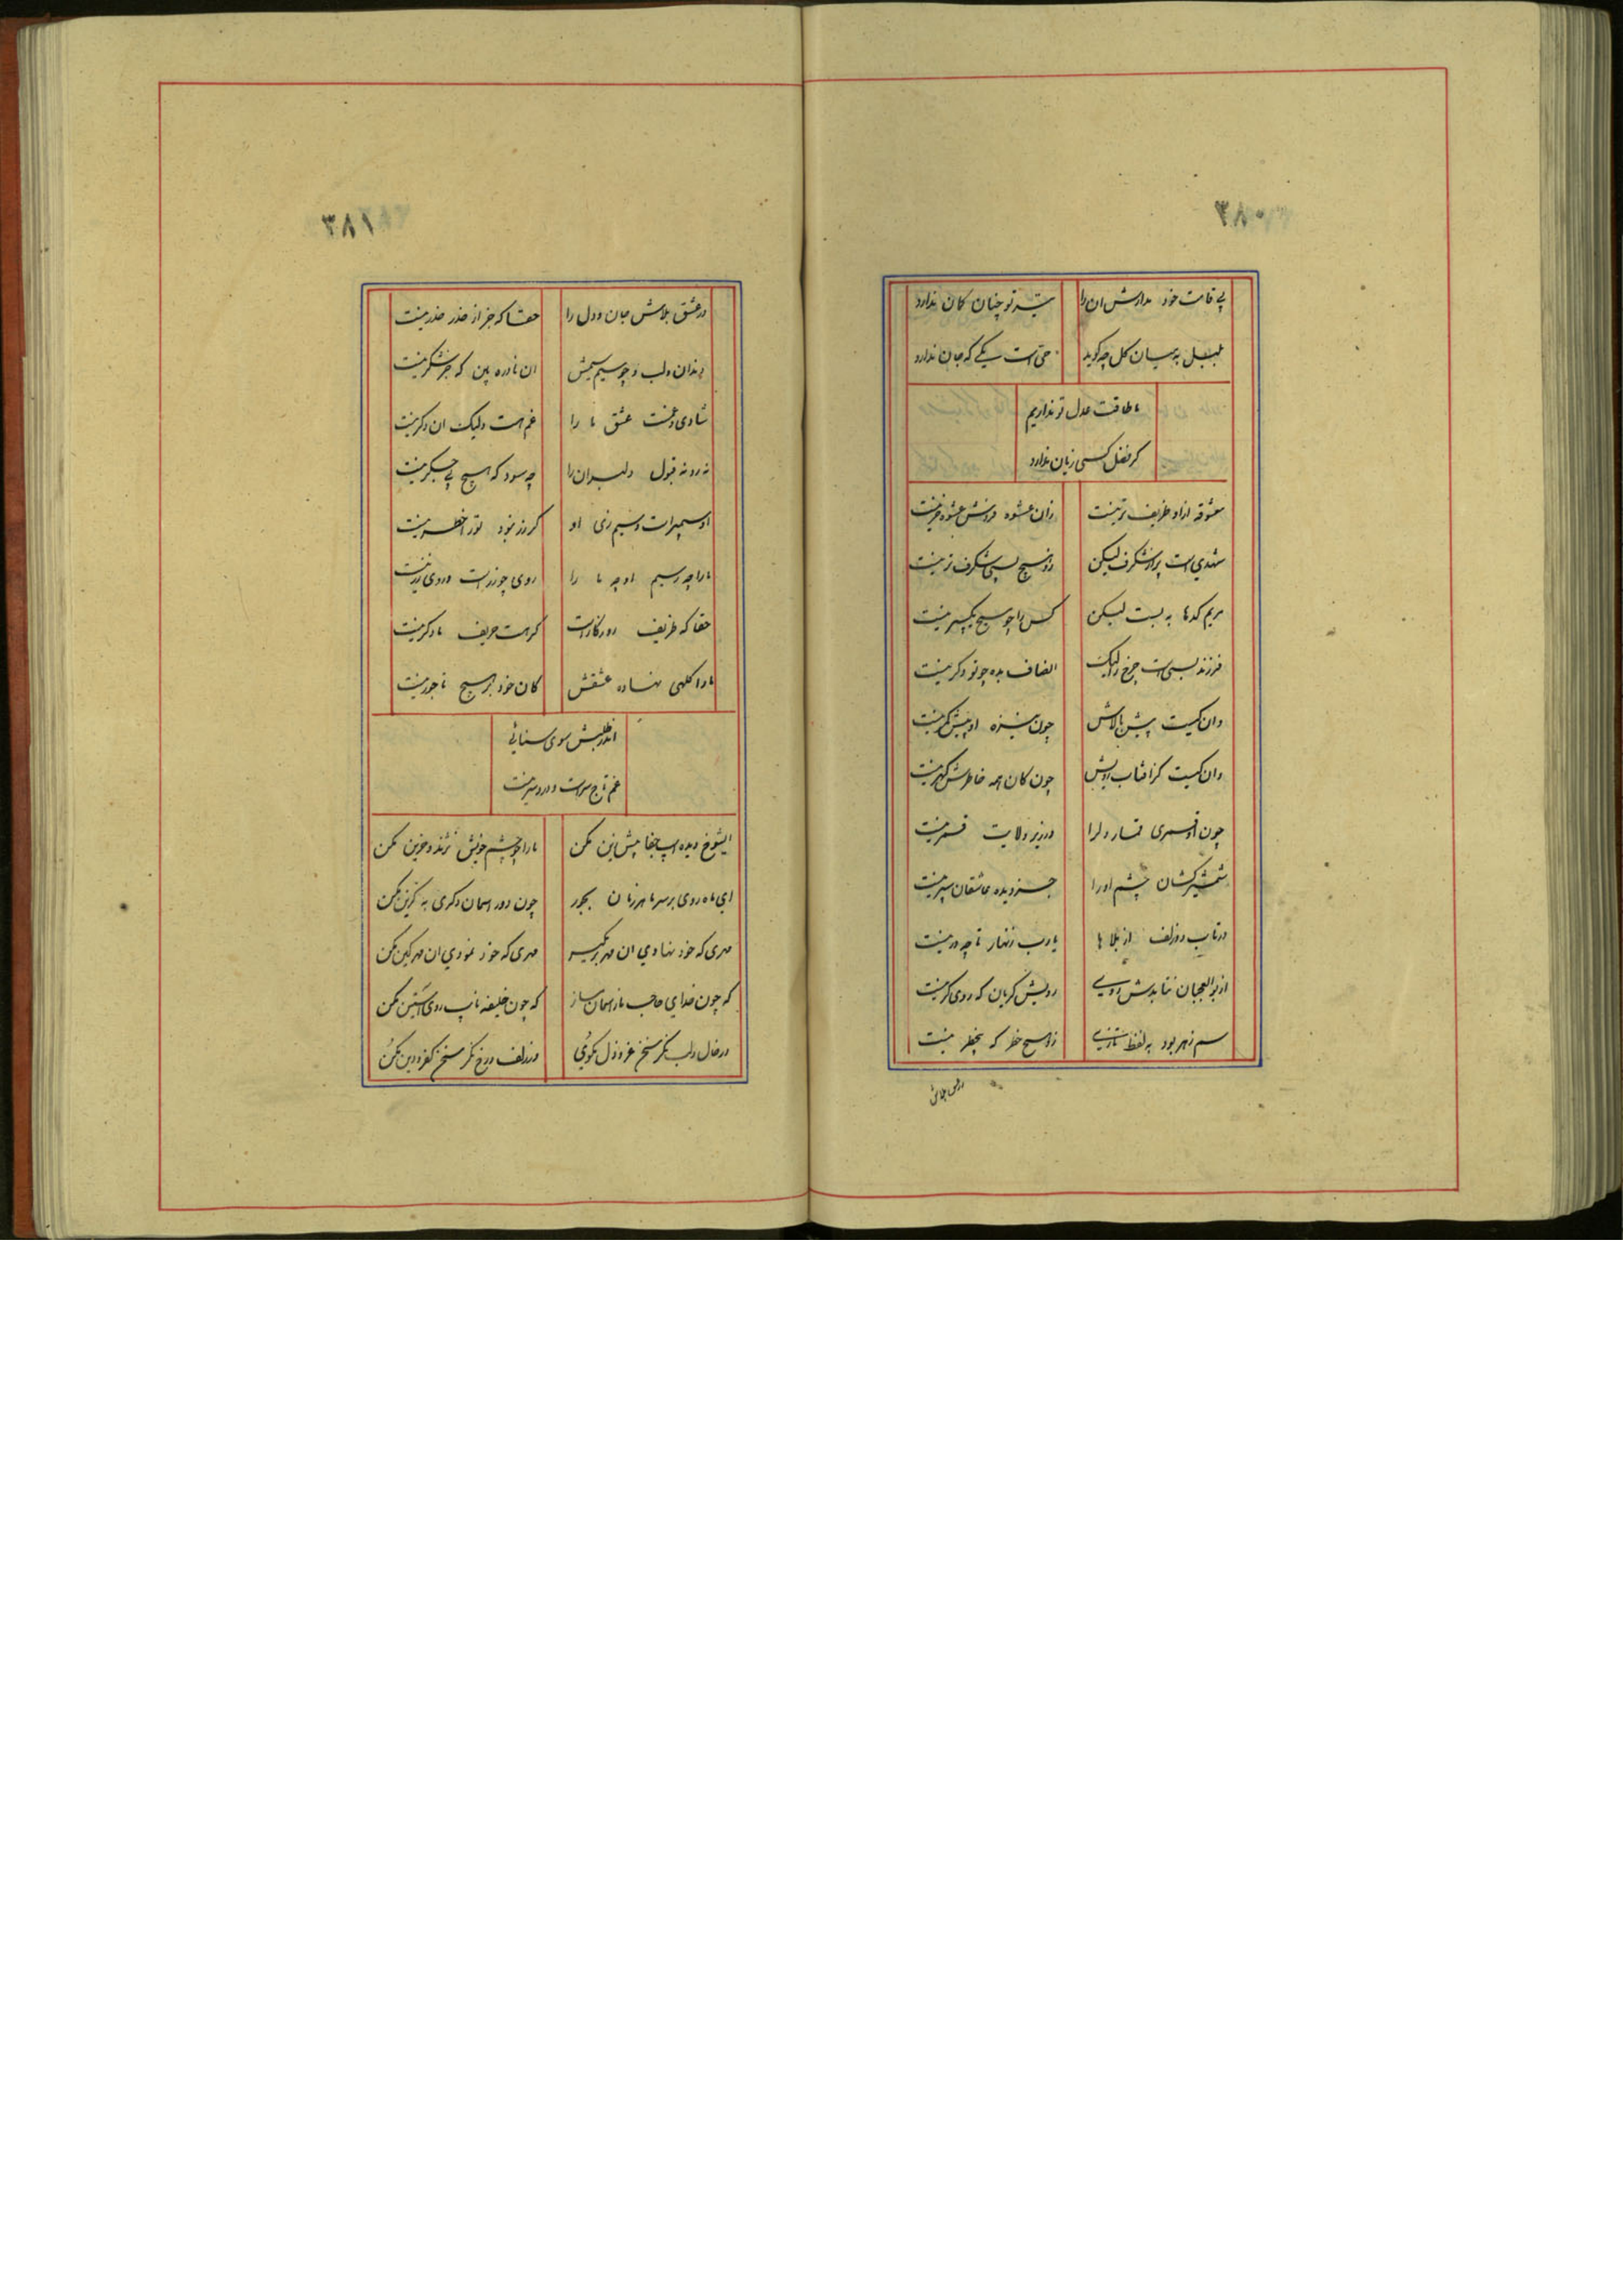 ۳۸۰
بی قامت خود مدارش ان را
تیر تو چنان کمان ندارد
بلبل به میان گل چه گوید
حق است یکی که جان ندارد
ما طاقت عدل تو نداریم
کر فضل کسی زیان ندارد
معشوقه از او ظریف تر نیست
زان عشوه فروش عشوه خر نیست
شهدی است پر از شکرف لیکن
زو هیچ بسی شکرف تر نیست
مریم کدها به بست لیکن
کس را چو مسیح یکپسر نیست
فرزند بسی است چرخ را لیک
انصاف بده چو تو دکر نیست
وان کیست پیش بالاش
چون نیزه او پیش کمر نیست
وان کیست کز افتاب رویش
چون کان همه خاطرش کهر نیست
چون او قمری قمار دلرا
در زیر ولایت قمر نیست
شمشیر کشان چشم او را
جز دیده عاشقان سپر نیست
در تاب دو زلف از بلا ها
یارب زنهار تا چه در نیست
از بوالعجبان نیابدش روی
رویش کریان که روی کر نیست
سم زهر بود به لفظ تازی
زو هیچ خطر که بیخطر نیست
۳۸۱
در عشق بلاش جان و دل را
حقا که جز از حذر حذر نیست
دندان و لب و چو سیم سیمش
ان نادره بین که جز شکر نیست
شادی و غمست عشق ما را
غم هست ولیک ان دکر نیست
نه رد نه قبول دلبران را
چه سود که هیچ بی جکر نیست
او سیمبر است و سیم زی او
کر زر نبود تو را خطر نیست
ما را چه ز سیم او چه ما را
روی چو زر است و روی زر نیست
حقا که ظریف روزکار است
کر هست حریف ما دکر نیست
ما را کلهی نهاده عشقش
کان خود بر هیچ تاجور نیست
اندر طلبش سوی سنائی
غم تاج سر است و درد سر نیست
ایشوخ دیده اسب جفا پیش ازین مکن
ما را چو چشم خویش نژند و حزین مکن
ای ماه روی بر سر ما هر زمان بجور
چون دور اسمان دکری به کزین مکن
مهری که خود نهادی ان مهر برمکیر
مهری که خود نمودی ان مهر کین مکن
که چون خدای حاجب ما ز اسمان ساز
که چون خلیفه نایب روی استین مکن
در خال و لب نکر سخن عز و ذل مکوی
در زلف و رخ نکر سخن کفر و دین مکن